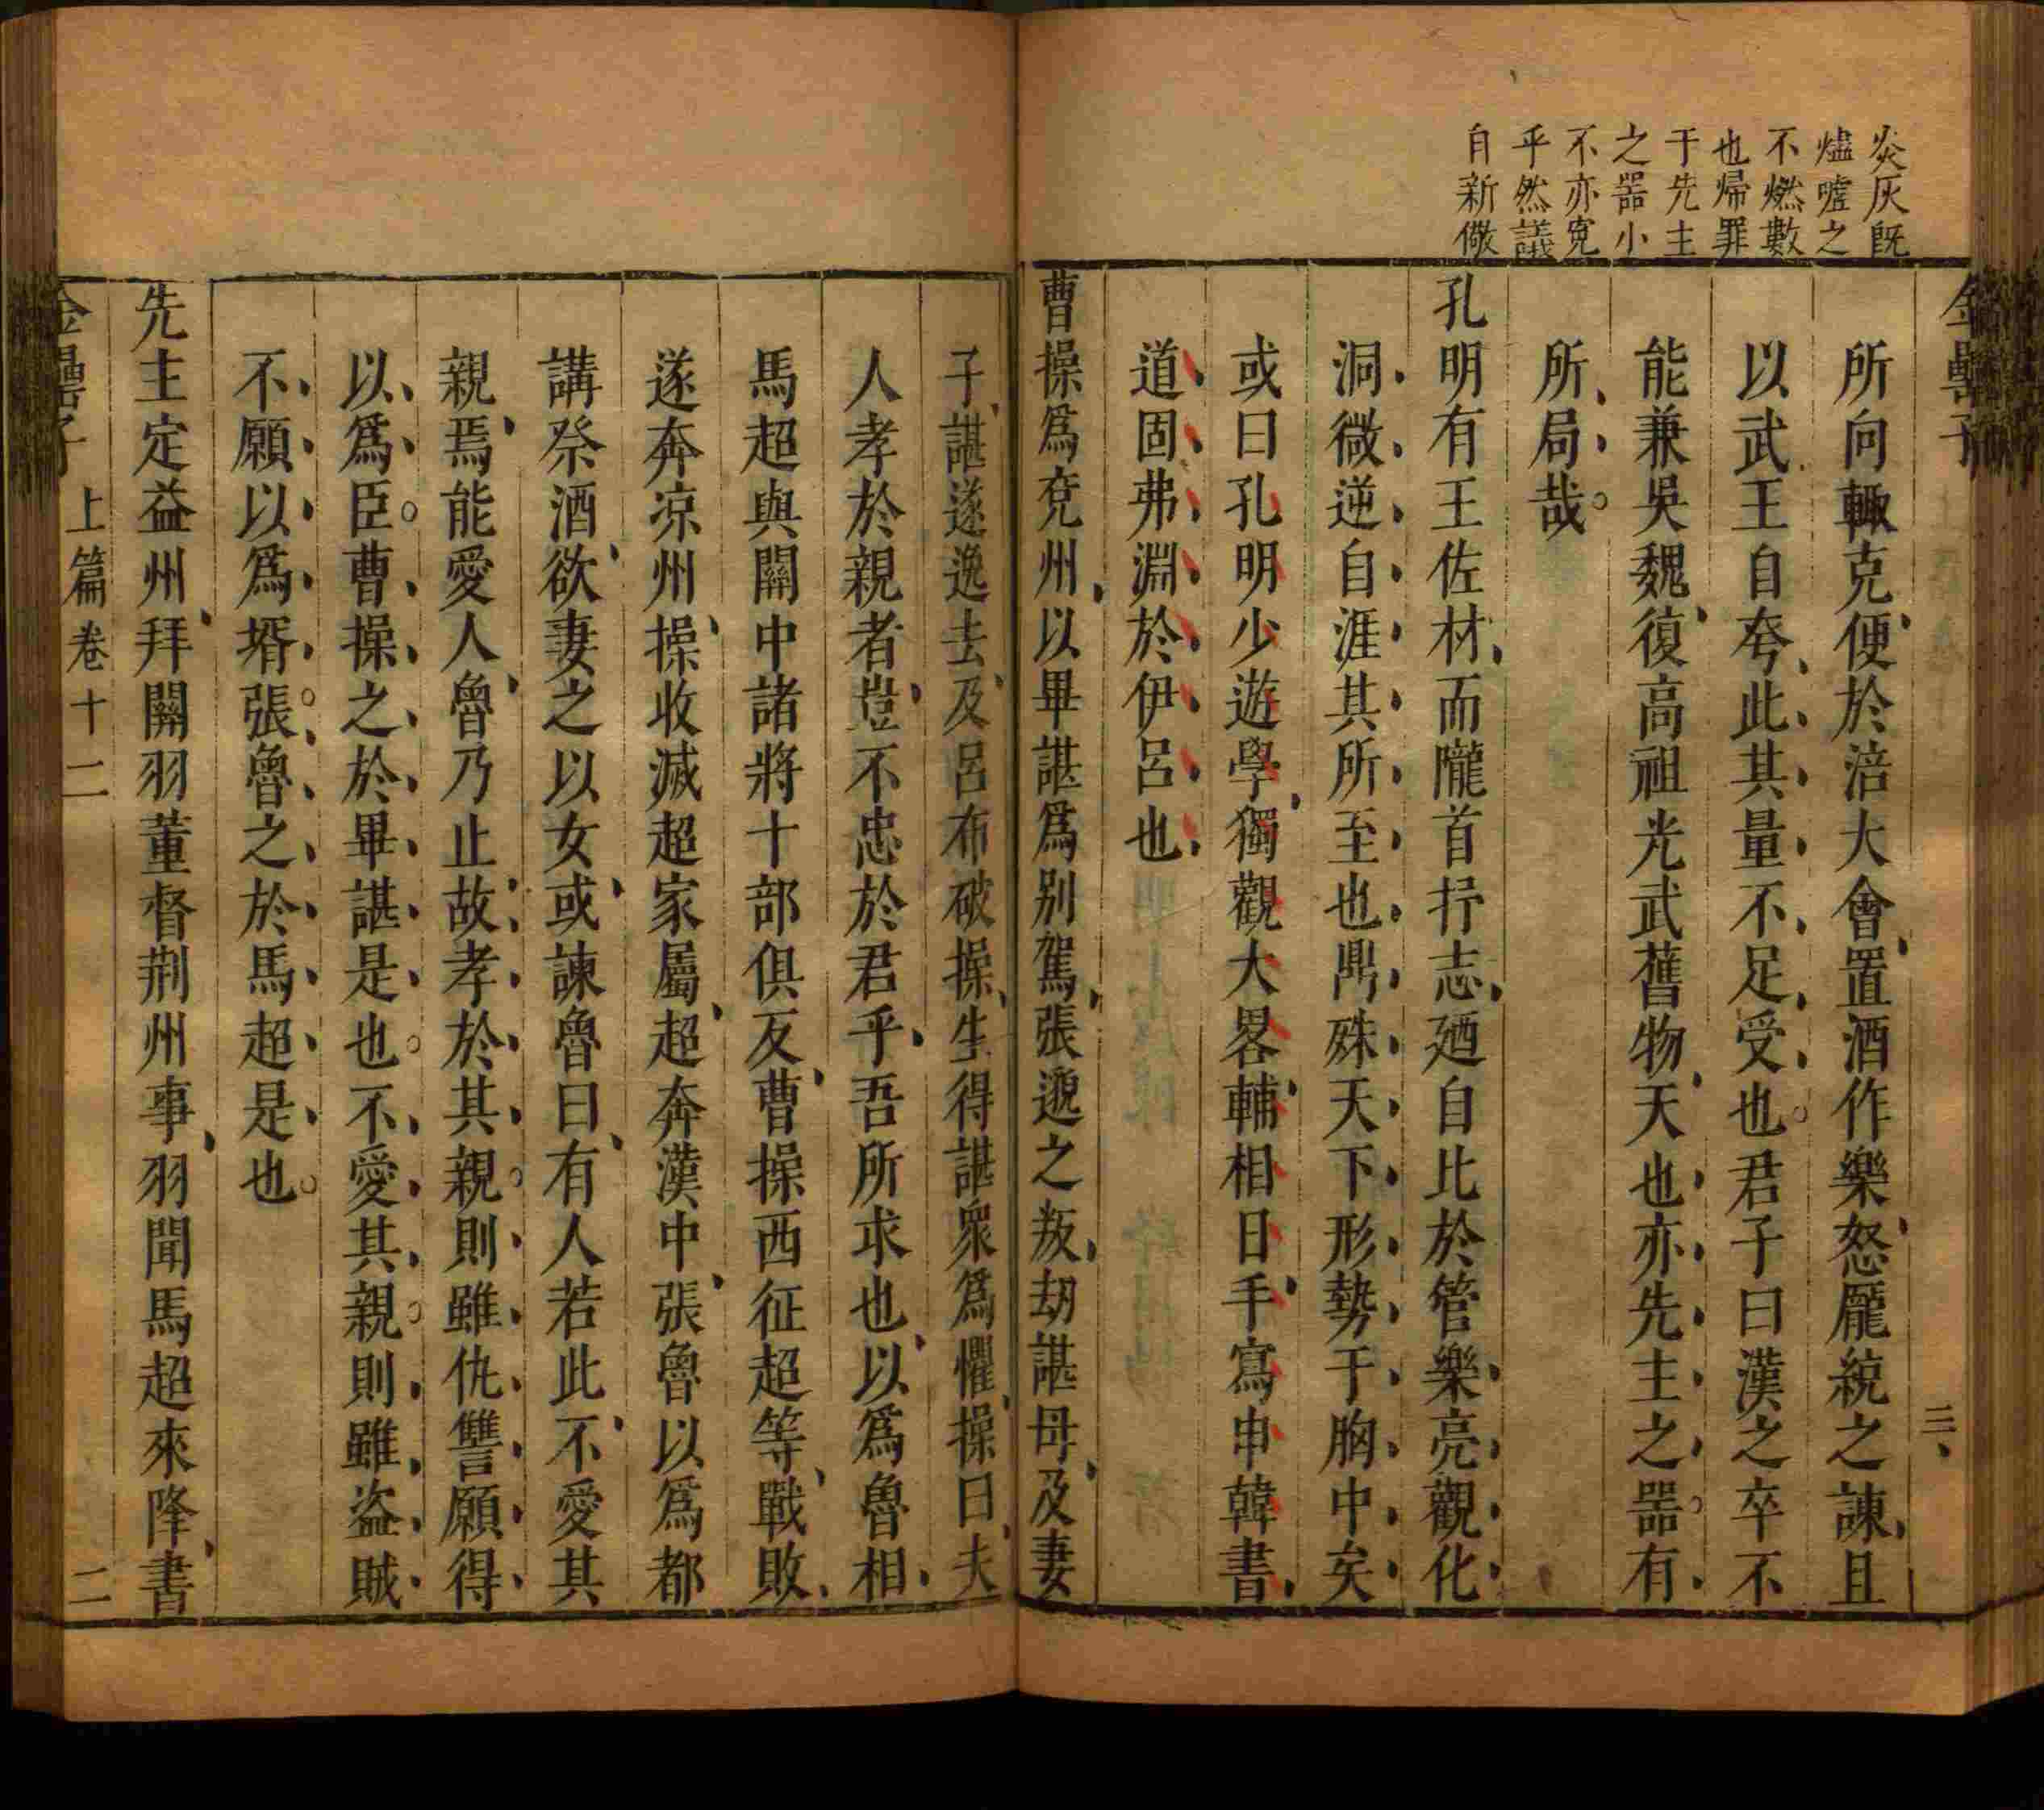 炎灰旣
燼噓之
不燃數
也歸罪
于先主
之噐小
不亦寃
乎然議
自新儆
金罍子
三
所向輙克便於涪大會置酒作樂怒龐統之諫且
以武王自夸此其量不足受也君子曰漢之卒不
能兼吳魏復高祖光武舊物天也亦先主之噐有
所局哉
孔明有王佐材而隴首抒志廼自比於管樂亮觀化
洞微逆自涯其所至也鼎殊天下形勢于胸中矣
或曰孔明少遊學獨觀大畧輔相日手寫申韓書
道固弗淵於伊呂也
曹操爲兖州以畢諶爲别駕張邈之叛刼諶母及妻
子諶遂逸去及呂布破操生得諶衆爲懼操曰夫
人孝於親者豈不忠於君乎吾所求也以爲魯相
馬超與關中諸將十部俱反曹操西征超等戰敗
遂奔凉州操收滅超家屬超奔漢中張魯以爲都
講祭酒欲妻之以女或諫魯曰有人若此不愛其
親焉能愛人魯乃止故孝於其親則雖仇讐願得
以爲臣曹操之於畢諶是也不愛其親則雖盜賊
不願以爲壻張魯之於馬超是也
先主定益州拜關羽董督荆州事羽聞馬超來降書
金罍子
上篇卷十二
二